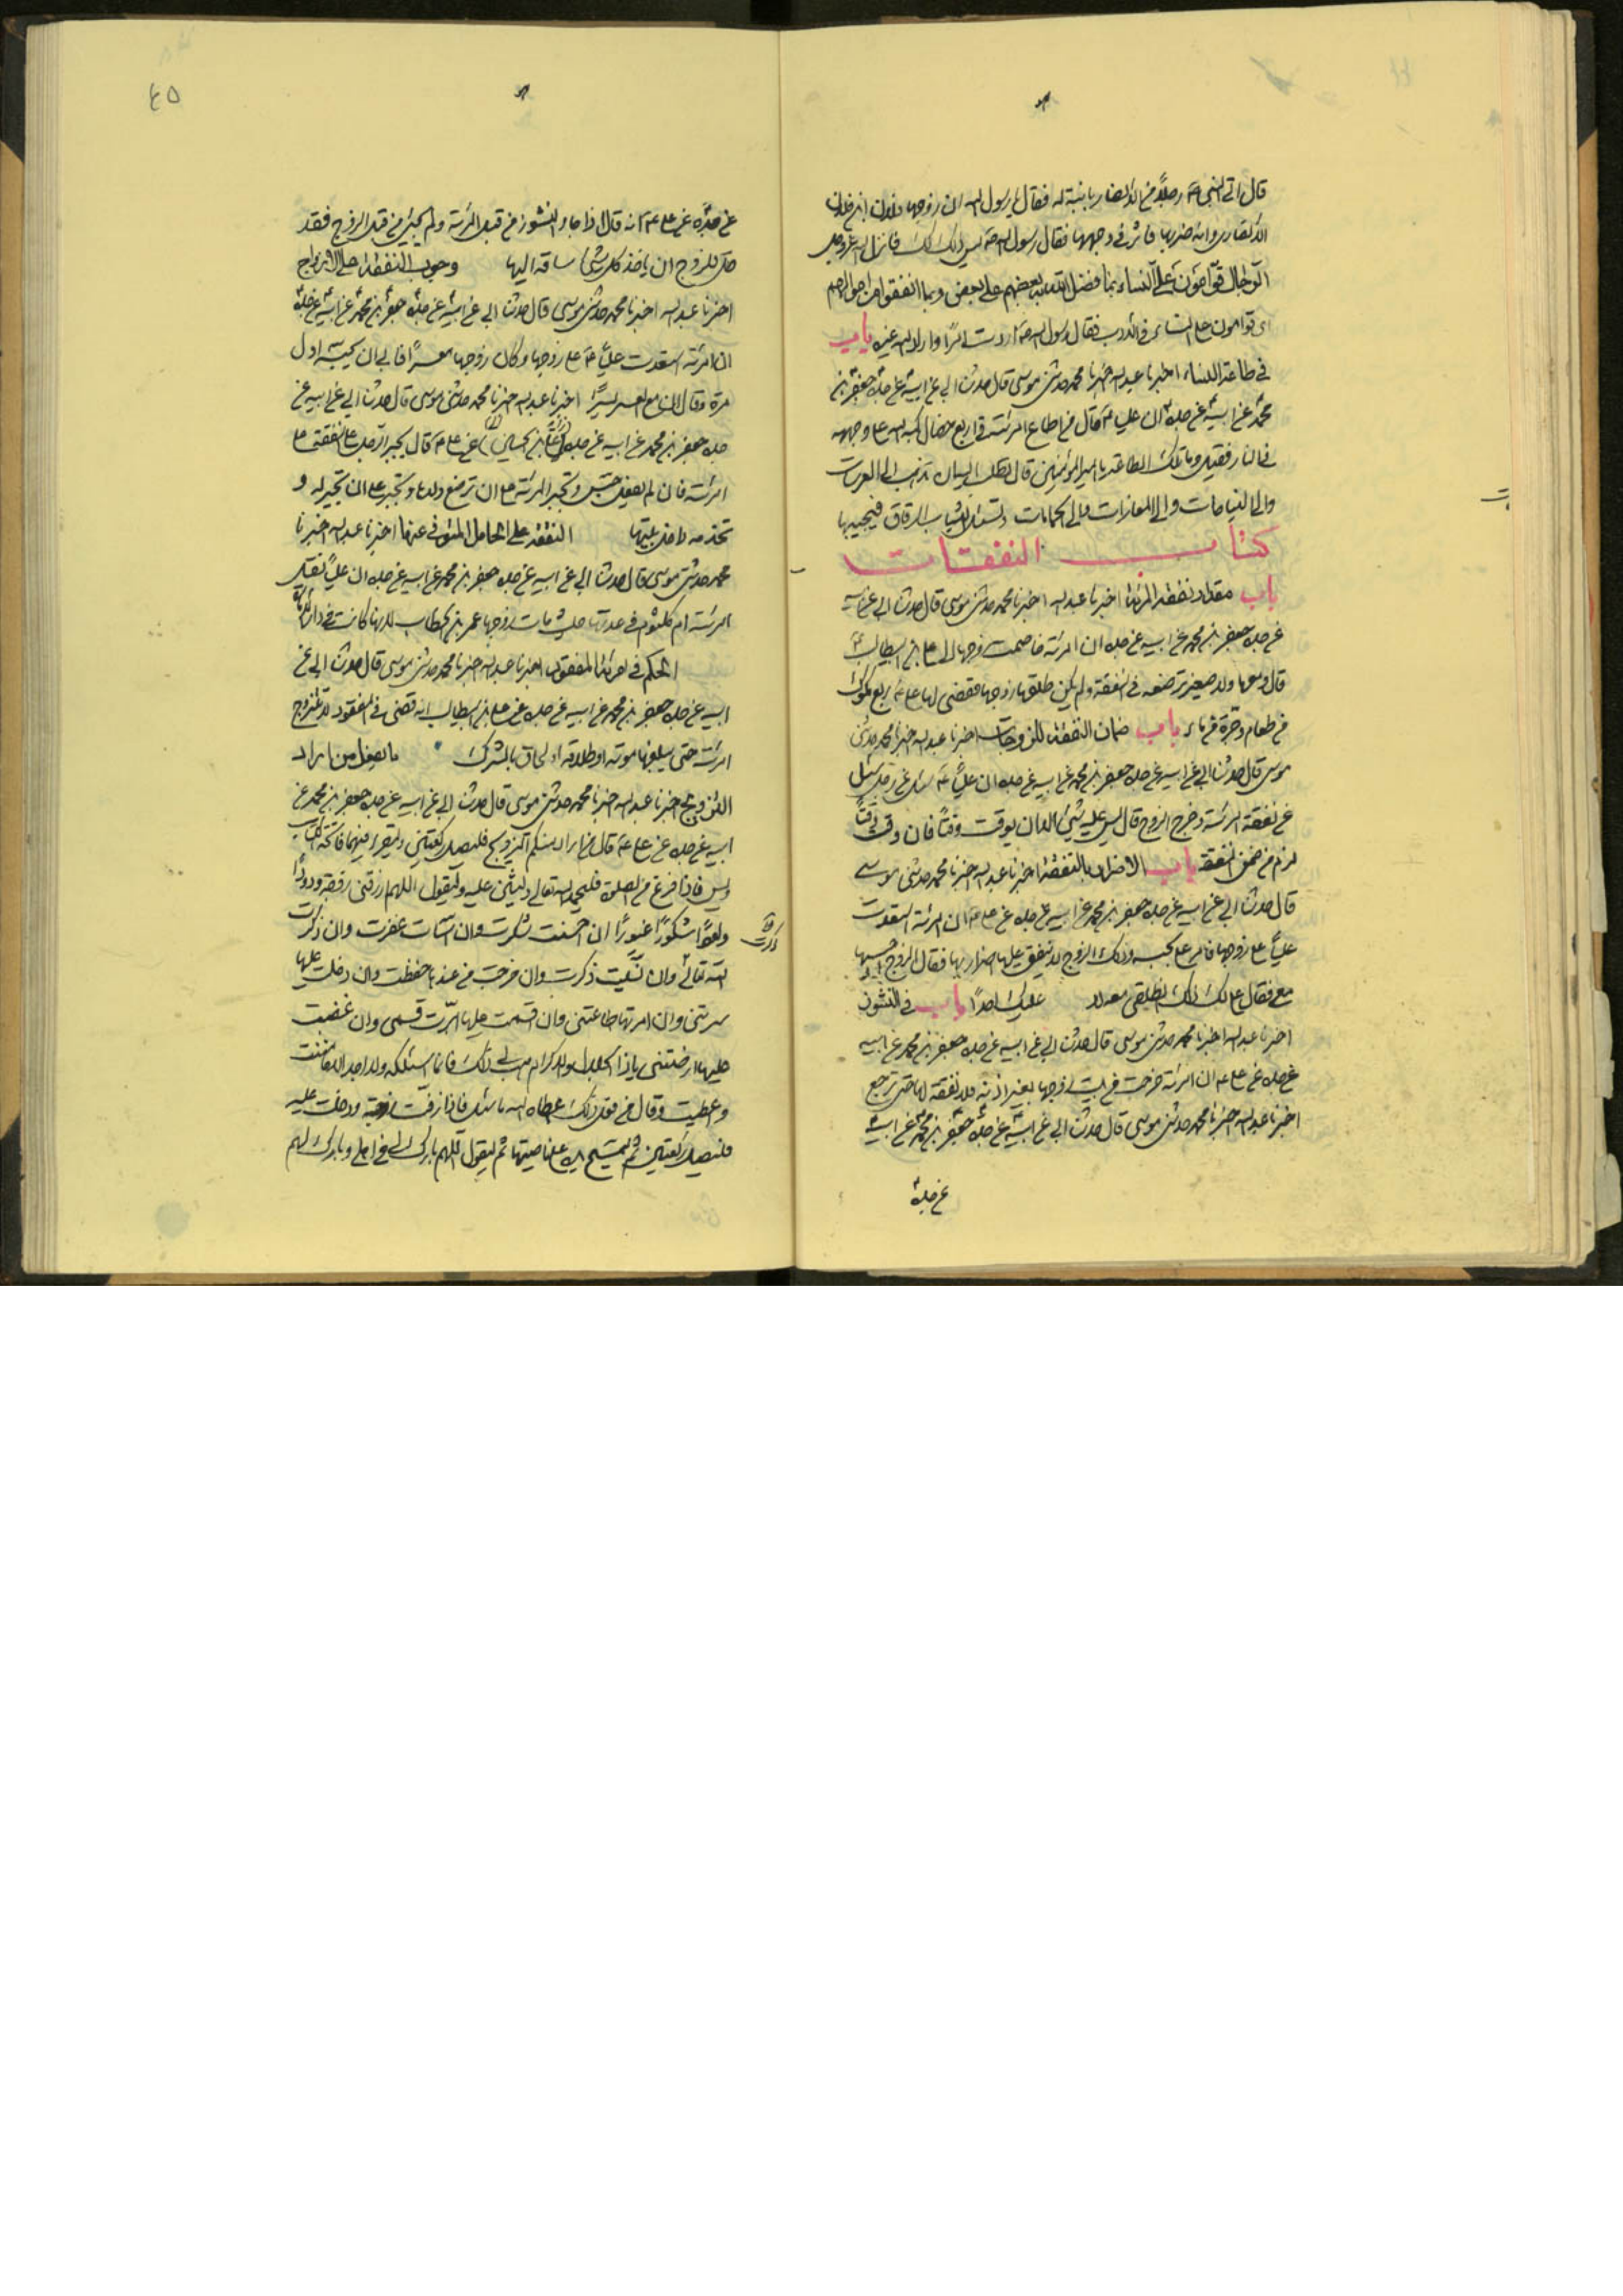 قال اتى النبي ص رجل من الانصار بابنة له فقال يا رسول الله ان زوجها فلان ابن فلان
الانصاري وانه ضربها فاثر في وجهها فقال رسول الله ص ليس ذلك لك فانزل الله عز وجل
الرجال قوامون على النساء بما فضل الله بعضهم على بعض وبما انفقوا من اموالهم
اى قوامون على النساء في الادب فقال رسول الله ص اردت امرا واراد الله غيره باب
في طاعة النساء اخبرنا عبد الله اخبرنا محمد حدثني موسى قال حدثنا ابي عن ابيه عن جده جعفر بن
محمد عن ابيه عن جده ان عليا ع قال من اطاع امرئته في اربع خصال كبه الله على وجهه
في النار فقيل وما تلك الطاعة يا امير المؤمنين قال تطلب اليه ان تذهب الى العرسات
والى النياحات والى المغازات والى الحمامات وتسئله الثياب الرقاق فيجيبها
كتاب النفقات
باب مقدار نفقة المرئة اخبرنا عبد الله اخبرنا محمد حدثني موسى قال حدثنا ابي عن ابيه
عن جده جعفر بن محمد عن ابيه عن جده ان امرئة خاصمت زوجها الى علي بن ابيطالب ع
قال ومعها ولد صغير ترضعه في النفقة ولم يكن طلقها زوجها فقضى لها على ع ربع مكوك
من طعام وجرة من ماء باب ضمان النفقة للزوجات اخبرنا عبد الله اخبرنا محمد حدثني
موسى قال حدثنا ابي عن ابيه عن جده جعفر بن محمد عن ابيه عن جده ان عليا ع سئل عن رجل سئل
عن نفقة امرئته وخرج الزوج قال ليس عليه شئ الا ان يوقت وقتا فان وقت وقتا
لزم من ضمن النفقة باب الاضرار بالنفقة اخبرنا عبد الله اخبرنا محمد حدثني موسى
قال حدثنا ابي عن ابيه عن جده جعفر بن محمد عن ابيه عن جده عن علي ع ان امرئة استعدت
عليا على زوجها فامر علي بحبسه وذلك الزوج لا ينفق عليها اضرارا بها فقال الزوج احبسها
معي فقال علي لك ذلك انطلقي معه باب في النشوز
اخبرنا عبد الله اخبرنا محمد حدثني موسى قال حدثنا ابي عن ابيه عن جده جعفر بن محمد عن ابيه
عن جده عن علي ع ان امرئة خرجت من بيت زوجها بغير اذنه فلا نفقة لها حتى ترجع
اخبرنا عبد الله اخبرنا محمد حدثني موسى قال حدثنا ابي عن ابيه عن جده جعفر بن محمد عن ابيه
عن جده
٤٥
عن جده عن علي ع انه قال اذا جاء النشوز من قبل المرئة ولم يجئ من قبل الزوج فقد
حل للزوج ان ياخذ كل شئ ساقه اليها وجوب النفقة على الازواج
اخبرنا عبد الله اخبرنا محمد حدثني موسى قال حدثنا ابي عن ابيه عن جده جعفر بن محمد عن ابيه عن جده
ان امرئة استعدت عليا ع على زوجها وكان زوجها معسرا فابى ان يحبسه اول
مرة وقال ان مع العسر يسرا اخبرنا عبد الله اخبرنا محمد حدثني موسى قال حدثنا ابي عن ابيه عن
جده جعفر بن محمد عن ابيه عن جده علي بن الحسين عن علي ع قال يجبر الرجل على نفقة
امرئته فان لم يفعل حبس وتجبر المرئة على ان ترضع ولدها وتجبر على ان تخبز له و
تخدمه داخل بيتها النفقة على الحامل المتوفى عنها اخبرنا عبد الله اخبرنا
محمد حدثني موسى قال حدثنا ابي عن ابيه عن جده جعفر بن محمد عن ابيه عن جده ان عليا نقل
امرئة ام كلثوم في عدتها حيث مات زوجها عمر بن الخطاب لانها كانت في دار الامارة
الحكم في امرئة المفقود اخبرنا عبد الله اخبرنا محمد حدثني موسى قال حدثنا ابي عن
ابيه عن جده جعفر بن محمد عن ابيه عن جده عن علي بن ابيطالب انه قضى في المفقود لا تتزوج
امرئته حتى يبلغها موته او طلاقه او لحاق بالشرك ما يفعل من اراد
التزويج اخبرنا عبد الله اخبرنا محمد حدثني موسى قال حدثنا ابي عن ابيه عن جده جعفر بن محمد عن
ابيه عن جده عن علي ع قال من اراد منكم التزويج فليصل ركعتين وليقرء فيهما فاتحة الكتاب
ويس فاذا فرغ من الصلوة فليحمد الله تعالى وليثن عليه وليقول اللهم ارزقني زوجة ودودا
ولودا شكورا غيورا ان احسنت شكرت وان اسات غفرت وان ذكرت
الله تعالى وان نسيت ذكرت وان خرجت من عندها حفظت وان دخلت عليها
سرتني وان امرتها اطاعتني وان اقسمت عليها ابرت قسمي وان غضبت
عليها ارضتني ياذا الجلال والاكرام هب لي ذلك فانما اسئلكه ولا اجد الا ما مننت
واعطيت وقال من فعل ذلك اعطاه الله ما سئل فاذا زفت زوجته ودخلت عليه
فليصل ركعتين ثم ليمسح يده على ناصيتها ثم ليقول اللهم بارك لي في اهلي وبارك لهم